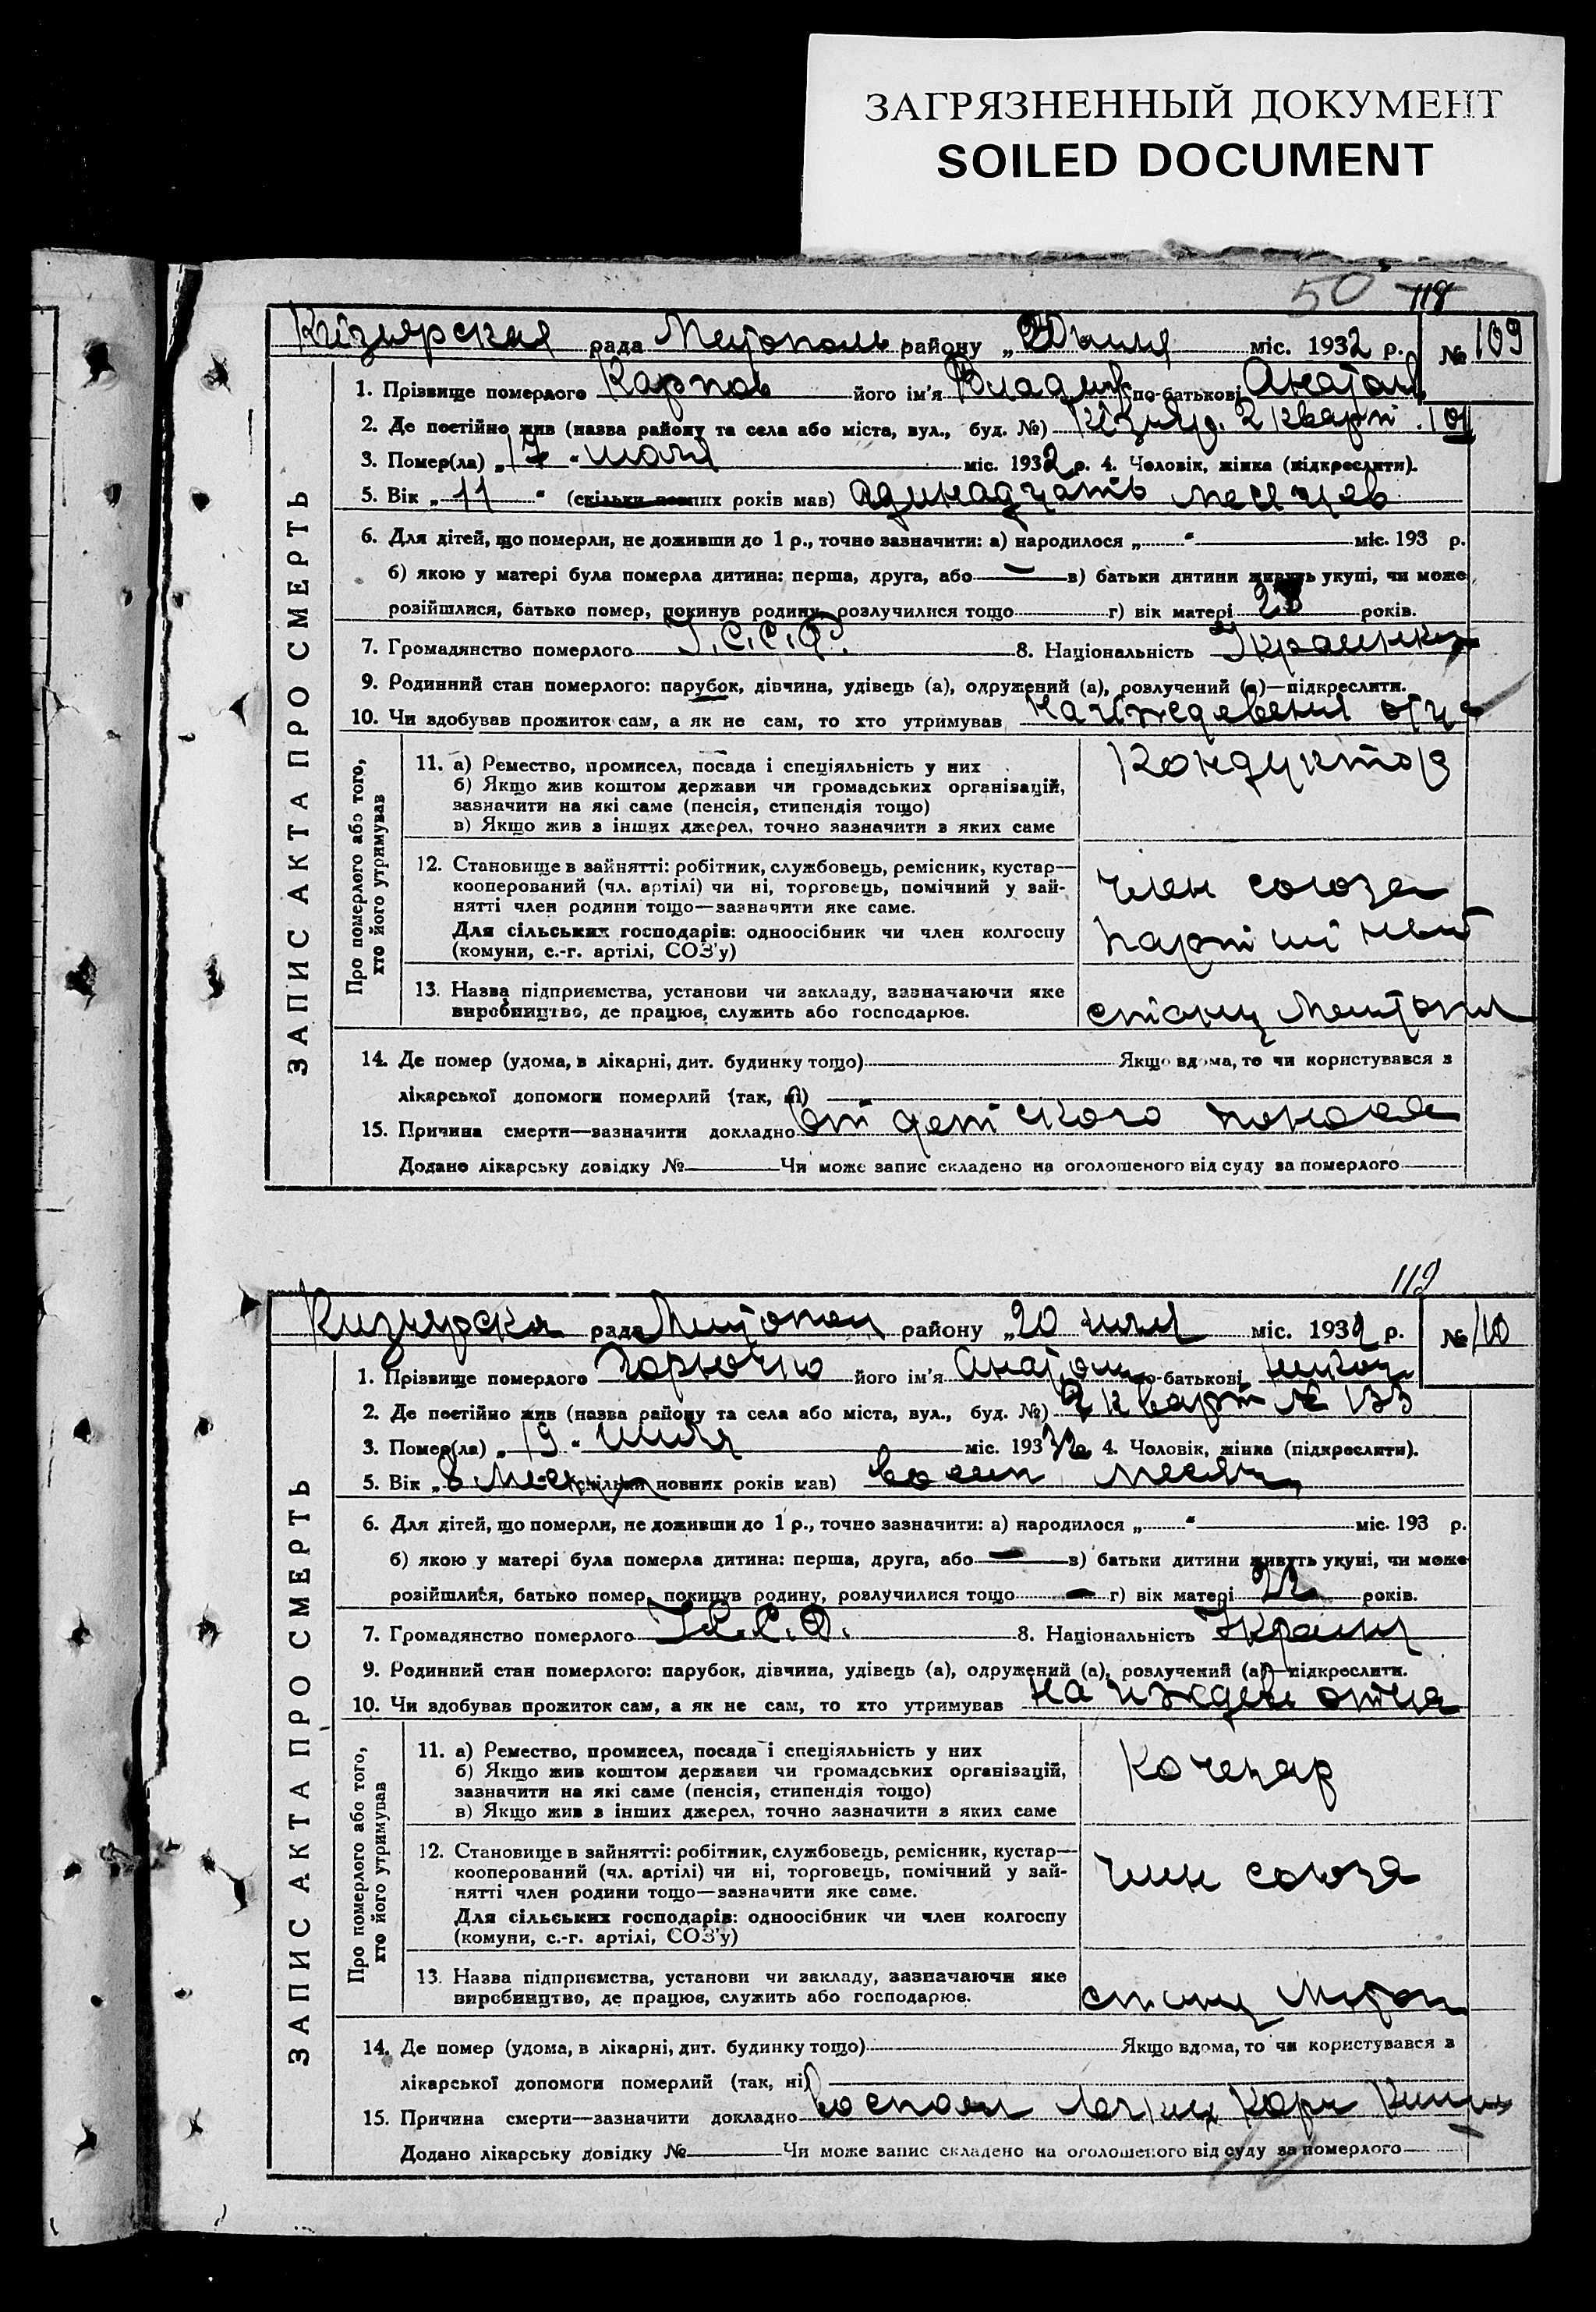 ЗАГРЯЗНЕННЫЙ ДОКУМЕНТ
SOILED DOCUMENT
50 118
Кизиярская рада Мелітополь району „20 июля міс. 1932 р. № 109
ЗАПИС АКТА ПРО СМЕРТЬ
1. Прізвище померлого Карпов його ім'я Владим по-батькові Анатол
2. Де постійно жив (назва району та села або міста, вул., буд. №) Кизияр. 2 кварт. 101
3. Помер(ла) „17“ июля міс. 1932 р. 4. Чоловік, жінка (підкреслити).
5. Вік „11“ (скільки повних років мав) адинадцать месяцев
6. Для дітей, що померли, не доживши до 1 р., точно зазначити: а) народилося „ “ міс. 193 р.
б) якою у матері була померла дитина: перша, друга, або — в) батьки дитини живуть укупі, чи може
розійшлися, батько помер, покинув родину, розлучилися тощо г) вік матері 23 років.
7. Громадянство померлого У.С.С.Р. 8. Національність
9. Родинний стан померлого: парубок, дівчина, удівець (а), одружений (а), розлучений (а)—підкреслити.
10. Чи здобував прожиток сам, а як не сам, то хто утримував на иждевении отца
Про померлого або того, хто його утримував
11. а) Ремество, промисел, посада і спеціяльність у них Кондуктор
б) Якщо жив коштом держави чи громадських організацій,
зазначити на які саме (пенсія, стипендія тощо)
в) Якщо жив з інших джерел, точно зазначити з яких саме
12. Становище в зайнятті: робітник, службовець, ремісник, кустар—
кооперований (чл. артілі) чи ні, торговець, помічний у зай- член союза
нятті член родини тощо—зазначити яке саме.
Для сільських господарів: одноосібник чи член колгоспу
(комуни, с.-г. артілі, СОЗ'у)
13. Назва підприємства, установи чи закладу, зазначаючи яке
виробництво, де працює, служить або господарює.
14. Де помер (удома, в лікарні, дит. будинку тощо) Якщо вдома, то чи користувався з
лікарської допомоги померлий (так, ні)
15. Причина смерти—зазначити докладно от детского поноса
Додано лікарську довідку № Чи може запис складено на оголошеного від суду за померлого
119
Кизиярска рада району „20 июля міс. 1932 р. № 110
ЗАПИС АКТА ПРО СМЕРТЬ
1. Прізвище померлого його ім'я Анатоли по-батькові
2. Де постійно жив (назва району та села або міста, вул., буд. №) 2 кварт № 133
3. Помер(ла) „19“ июля міс. 1932 4. Чоловік, жінка (підкреслити).
5. Вік „8 (скільки повних років мав) восем месяц
6. Для дітей, що померли, не доживши до 1 р., точно зазначити: а) народилося „ “ міс. 193 р.
б) якою у матері була померла дитина: перша, друга, або — в) батьки дитини живуть укупі, чи може
розійшлися, батько помер, покинув родину, розлучилися тощо — г) вік матері 22 років.
7. Громадянство померлого У.С.С.Р. 8. Національність Украин
9. Родинний стан померлого: парубок, дівчина, удівець (а), одружений (а), розлучений (а)—підкреслити.
10. Чи здобував прожиток сам, а як не сам, то хто утримував на иждеве отца
Про померлого або того, хто його утримував
11. а) Ремество, промисел, посада і спеціяльність у них Кочегар
б) Якщо жив коштом держави чи громадських організацій,
зазначити на які саме (пенсія, стипендія тощо)
в) Якщо жив з інших джерел, точно зазначити з яких саме
12. Становище в зайнятті: робітник, службовець, ремісник, кустар—
кооперований (чл. артілі) чи ні, торговець, помічний у зай- член союза
нятті член родини тощо—зазначити яке саме.
Для сільських господарів: одноосібник чи член колгоспу
(комуни, с.-г. артілі, СОЗ'у)
13. Назва підприємства, установи чи закладу, зазначаючи яке
виробництво, де працює, служить або господарює.
14. Де помер (удома, в лікарні, дит. будинку тощо) Якщо вдома, то чи користувався з
лікарської допомоги померлий (так, ні)
15. Причина смерти—зазначити докладно
Додано лікарську довідку № Чи може запис складено на оголошеного від суду за померлого